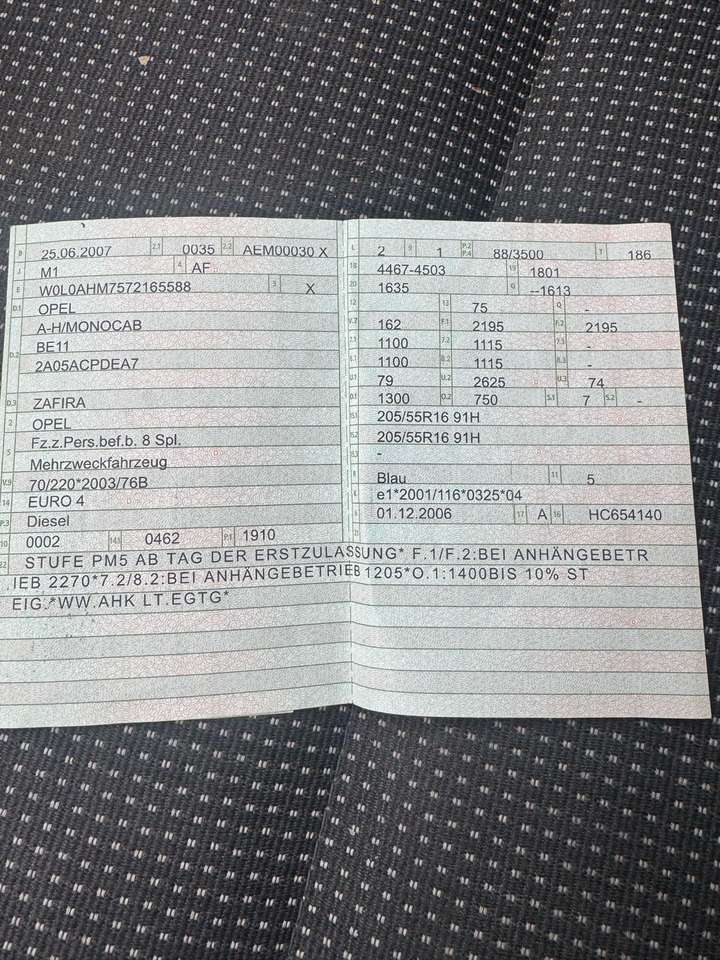 B 25.06.2007 2.1 0035 2.2 AEM00030 X
J M1 4 AF
E W0L0AHM7572165588 3 X
D.1 OPEL
A-H/MONOCAB
D.2 BE11
2A05ACPDEA7
D.3 ZAFIRA
2 OPEL
5 Fz.z.Pers.bef.b. 8 Spl.
Mehrzweckfahrzeug
V.9 70/220*2003/76B
14 EURO 4
P.3 Diesel
10 0002 14.1 0462 P.1 1910
L 2 9 1 P.2 P.4 88/3500 T 186
18 4467-4503 19 1801
20 1635 G --1613
12 13 75 Q -
V.7 162 F.1 2195 F.2 2195
7.1 1100 7.2 1115 7.3 -
8.1 1100 8.2 1115 8.3 -
U.1 79 U.2 2625 U.3 74
O.1 1300 O.2 750 S.1 7 S.2 -
15.1 205/55R16 91H
15.2 205/55R16 91H
15.3 -
R Blau 11 5
K e1*2001/116*0325*04
6 01.12.2006 17 A 16 HC654140
22 STUFE PM5 AB TAG DER ERSTZULASSUNG* F.1/F.2:BEI ANHÄNGEBETR
.IEB 2270*7.2/8.2:BEI ANHÄNGEBETRIEB 1205*O.1:1400BIS 10% ST
EIG.*WW.AHK LT.EGTG*